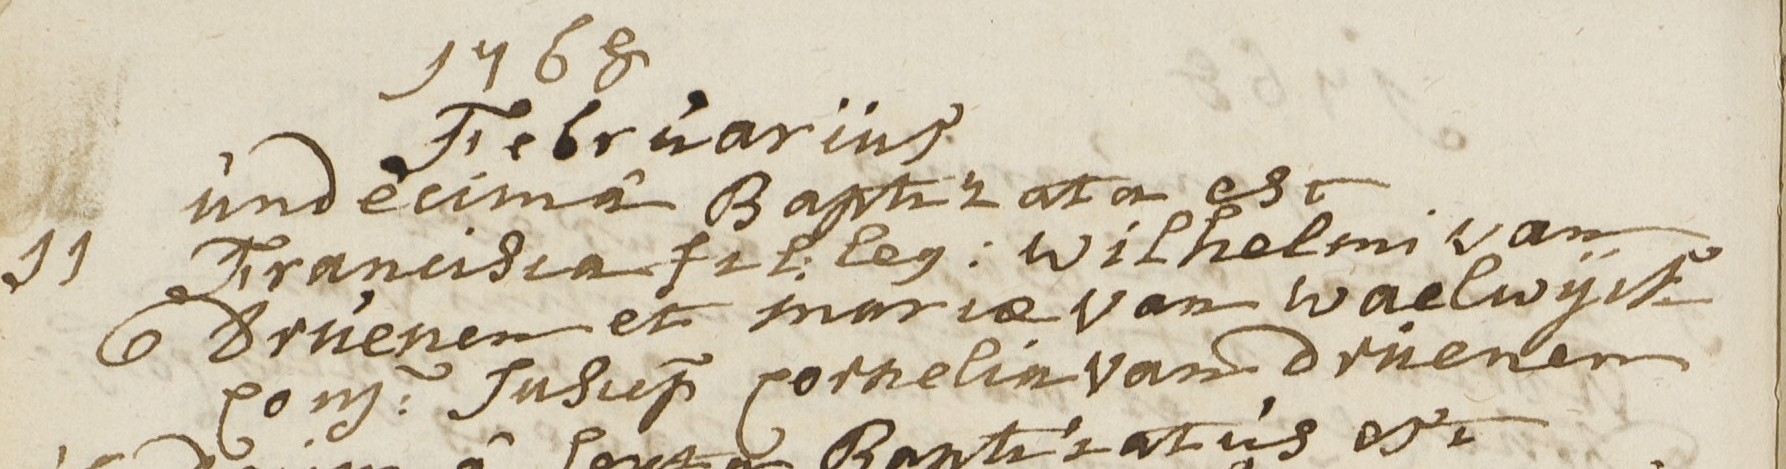 1768
Februarius
undecimâ Baptizata est
11 Francisca fil: leg: Wilhelmi van
Druenen et mariæ van waelwijck
conj: Suscep cornelia van Druenen
decimâ sexta Baptizatus est